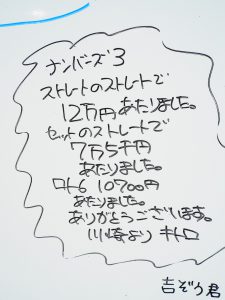 ナンバーズ3
ストレートのストレートで
12万円あたりました。
セットのストレートで
7万5千円
あたりました。
ロト6 10700円
あたりました。
ありがとうございます。
川崎より キトロ
吉ぞう君